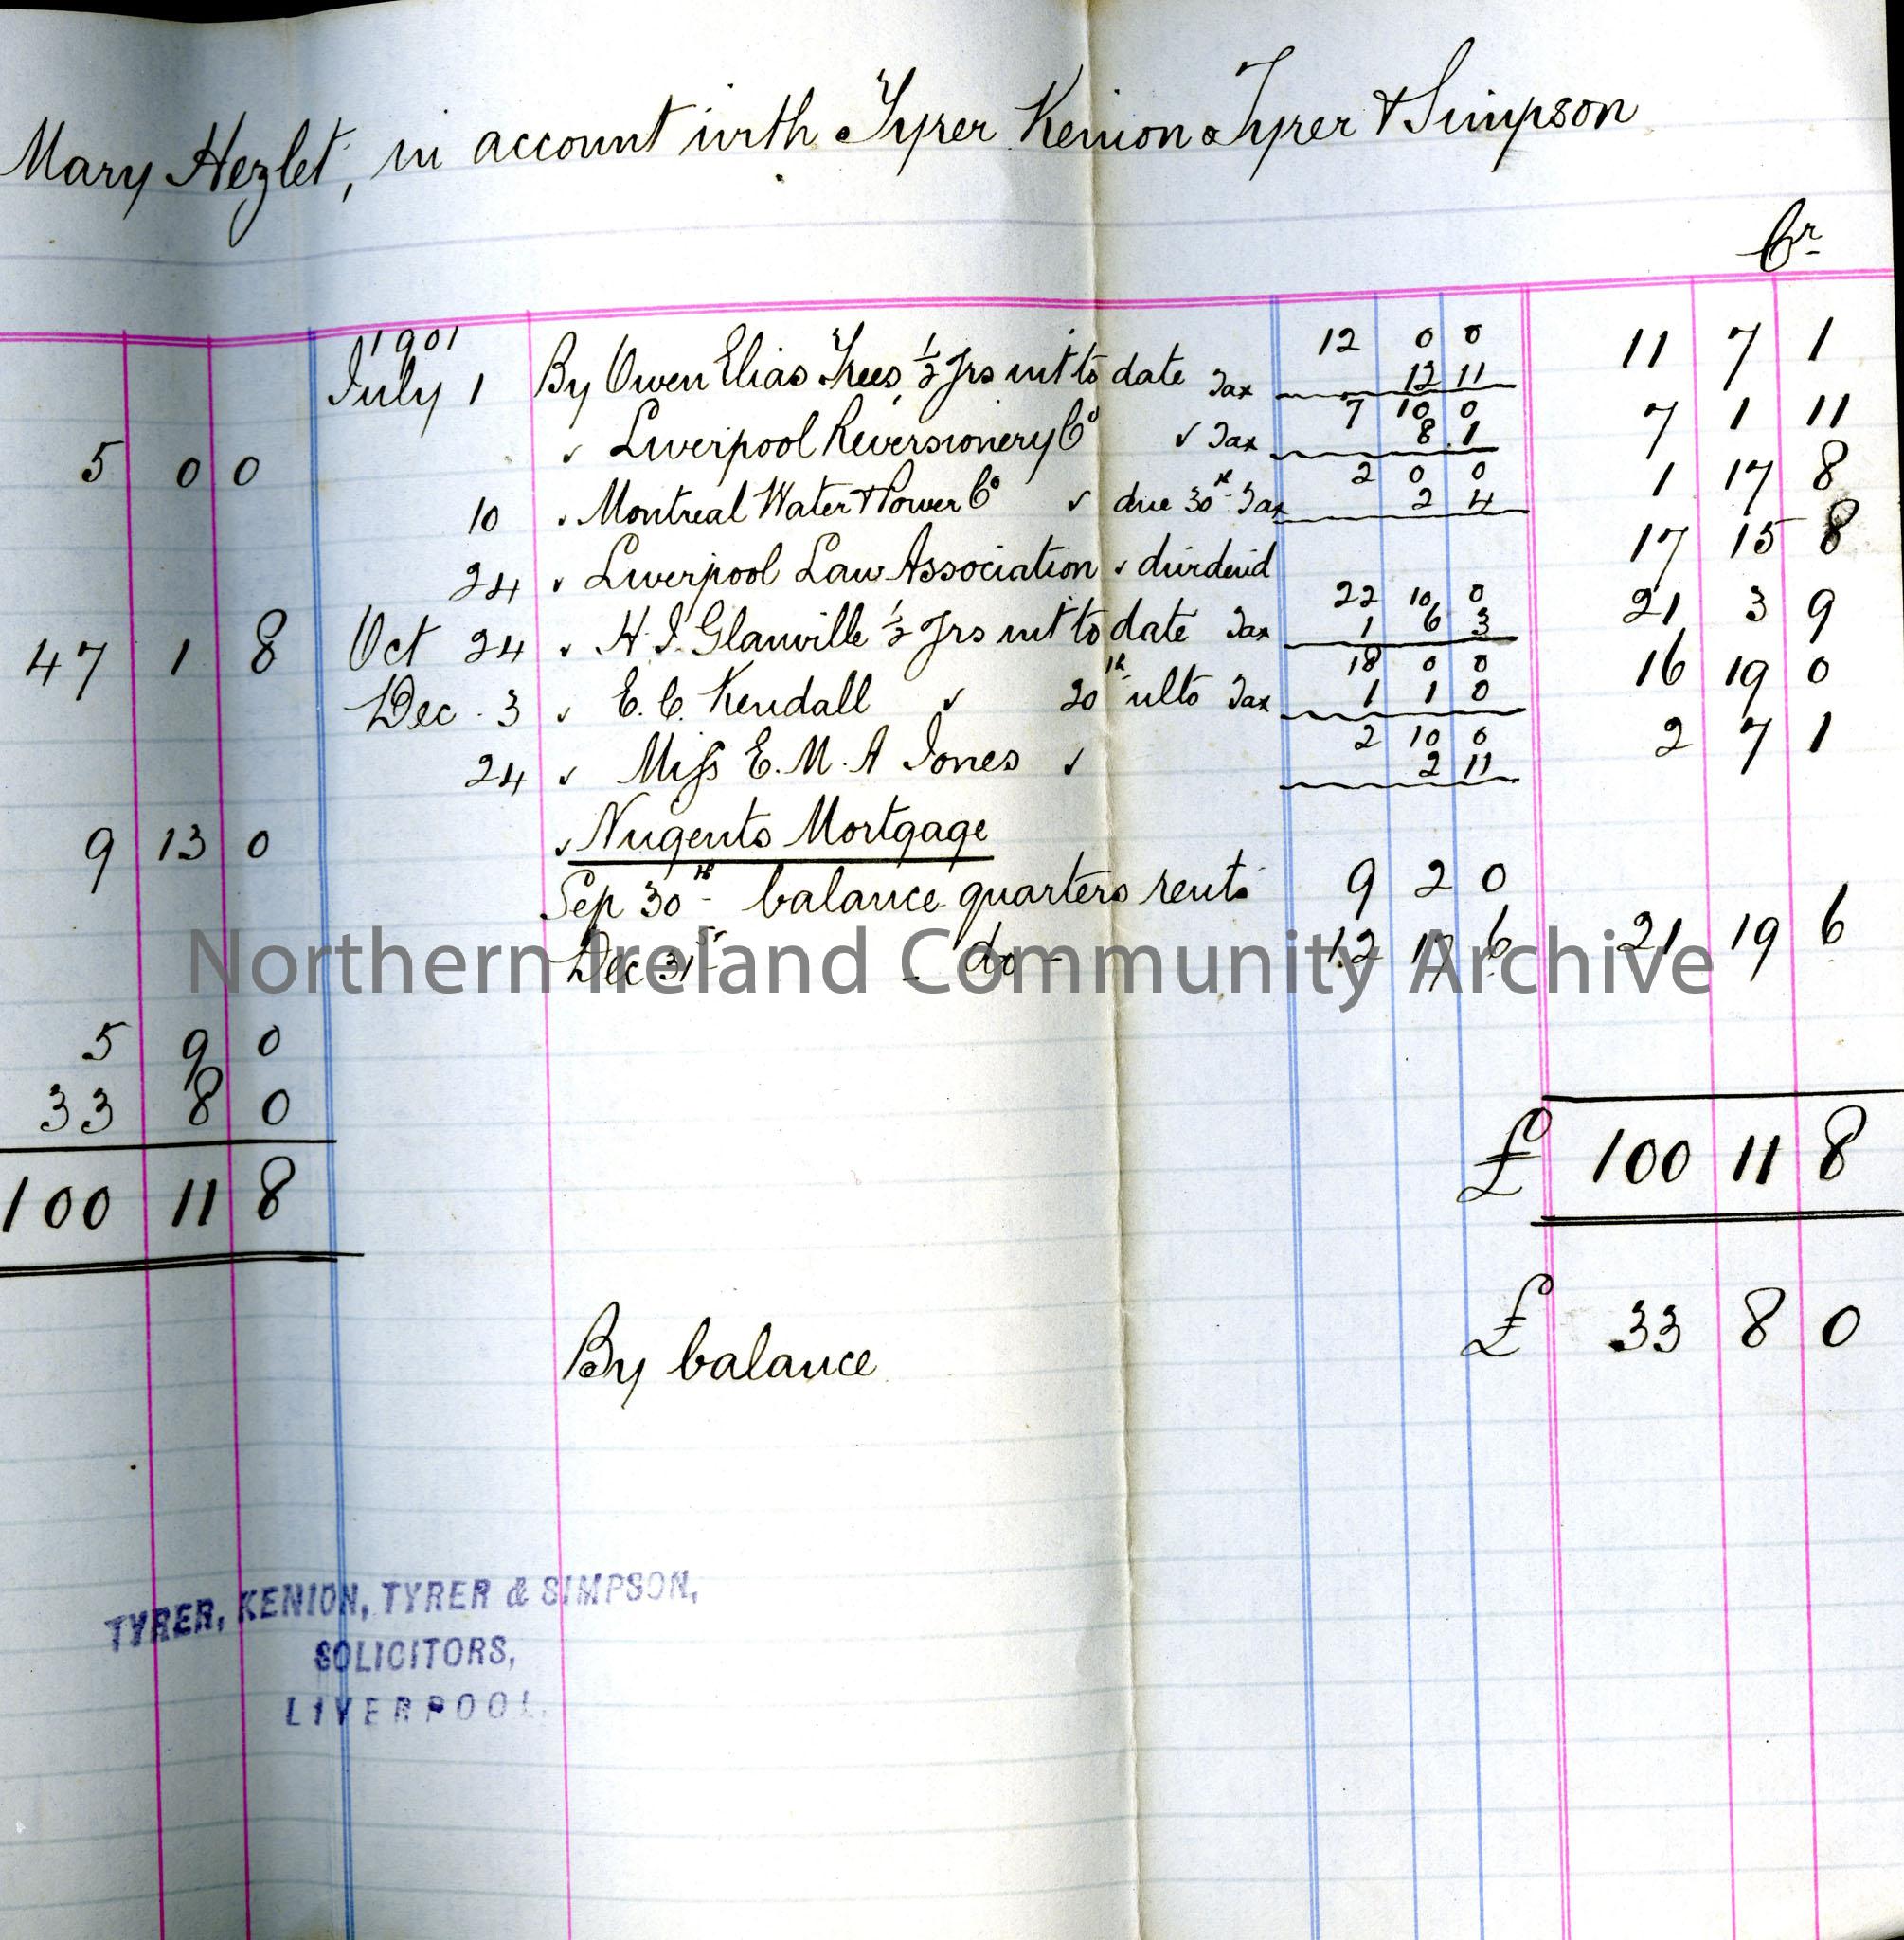 Mary Hezlet, in account with Tyrer Kenion Tyrer & Simpson
Cr
1901
July 1 By Owen Elias Trees, ½ yrs int to date Tax 12 0 0 12 11 11 7 1
" Liverpool Reversionery Co " Tax 7 10 0 8 1 7 1 11
5 0 0
10 " Montreal Water & Power Co " due 30th Tax 2 0 0 2 4 1 17 8
24 " Liverpool Law Association " dividend 17 15 8
47 1 8 Oct 24 " H. I. Glanville ½ yrs int to date Tax 22 10 0 1 6 3 21 3 9
Dec. 3 " E. C. Kendall " 20th ulto Tax 18 0 0 1 1 0 16 19 0
24 " Miss E. M. A Jones " 2 10 0 2 11 2 7 1
9 13 0 " Nugents Mortgage
Sep 30th balance quarters rents 9 2 0
Dec 31st - do - 12 17 6 21 19 6
Northern Ireland Community Archive
5 9 0
33 8 0
100 11 8 £ 100 11 8
By balance £ 33 8 0
TYRER, KENION, TYRER & SIMPSON,
SOLICITORS,
LIVERPOOL.